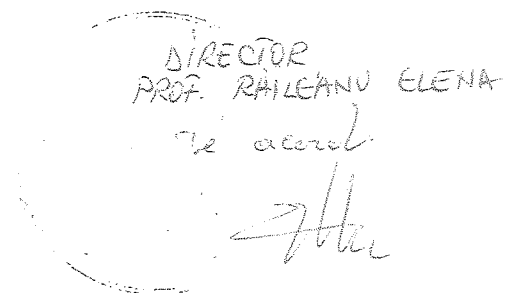 DIRECTOR
PROF. RĂILEANU ELENA
De acord